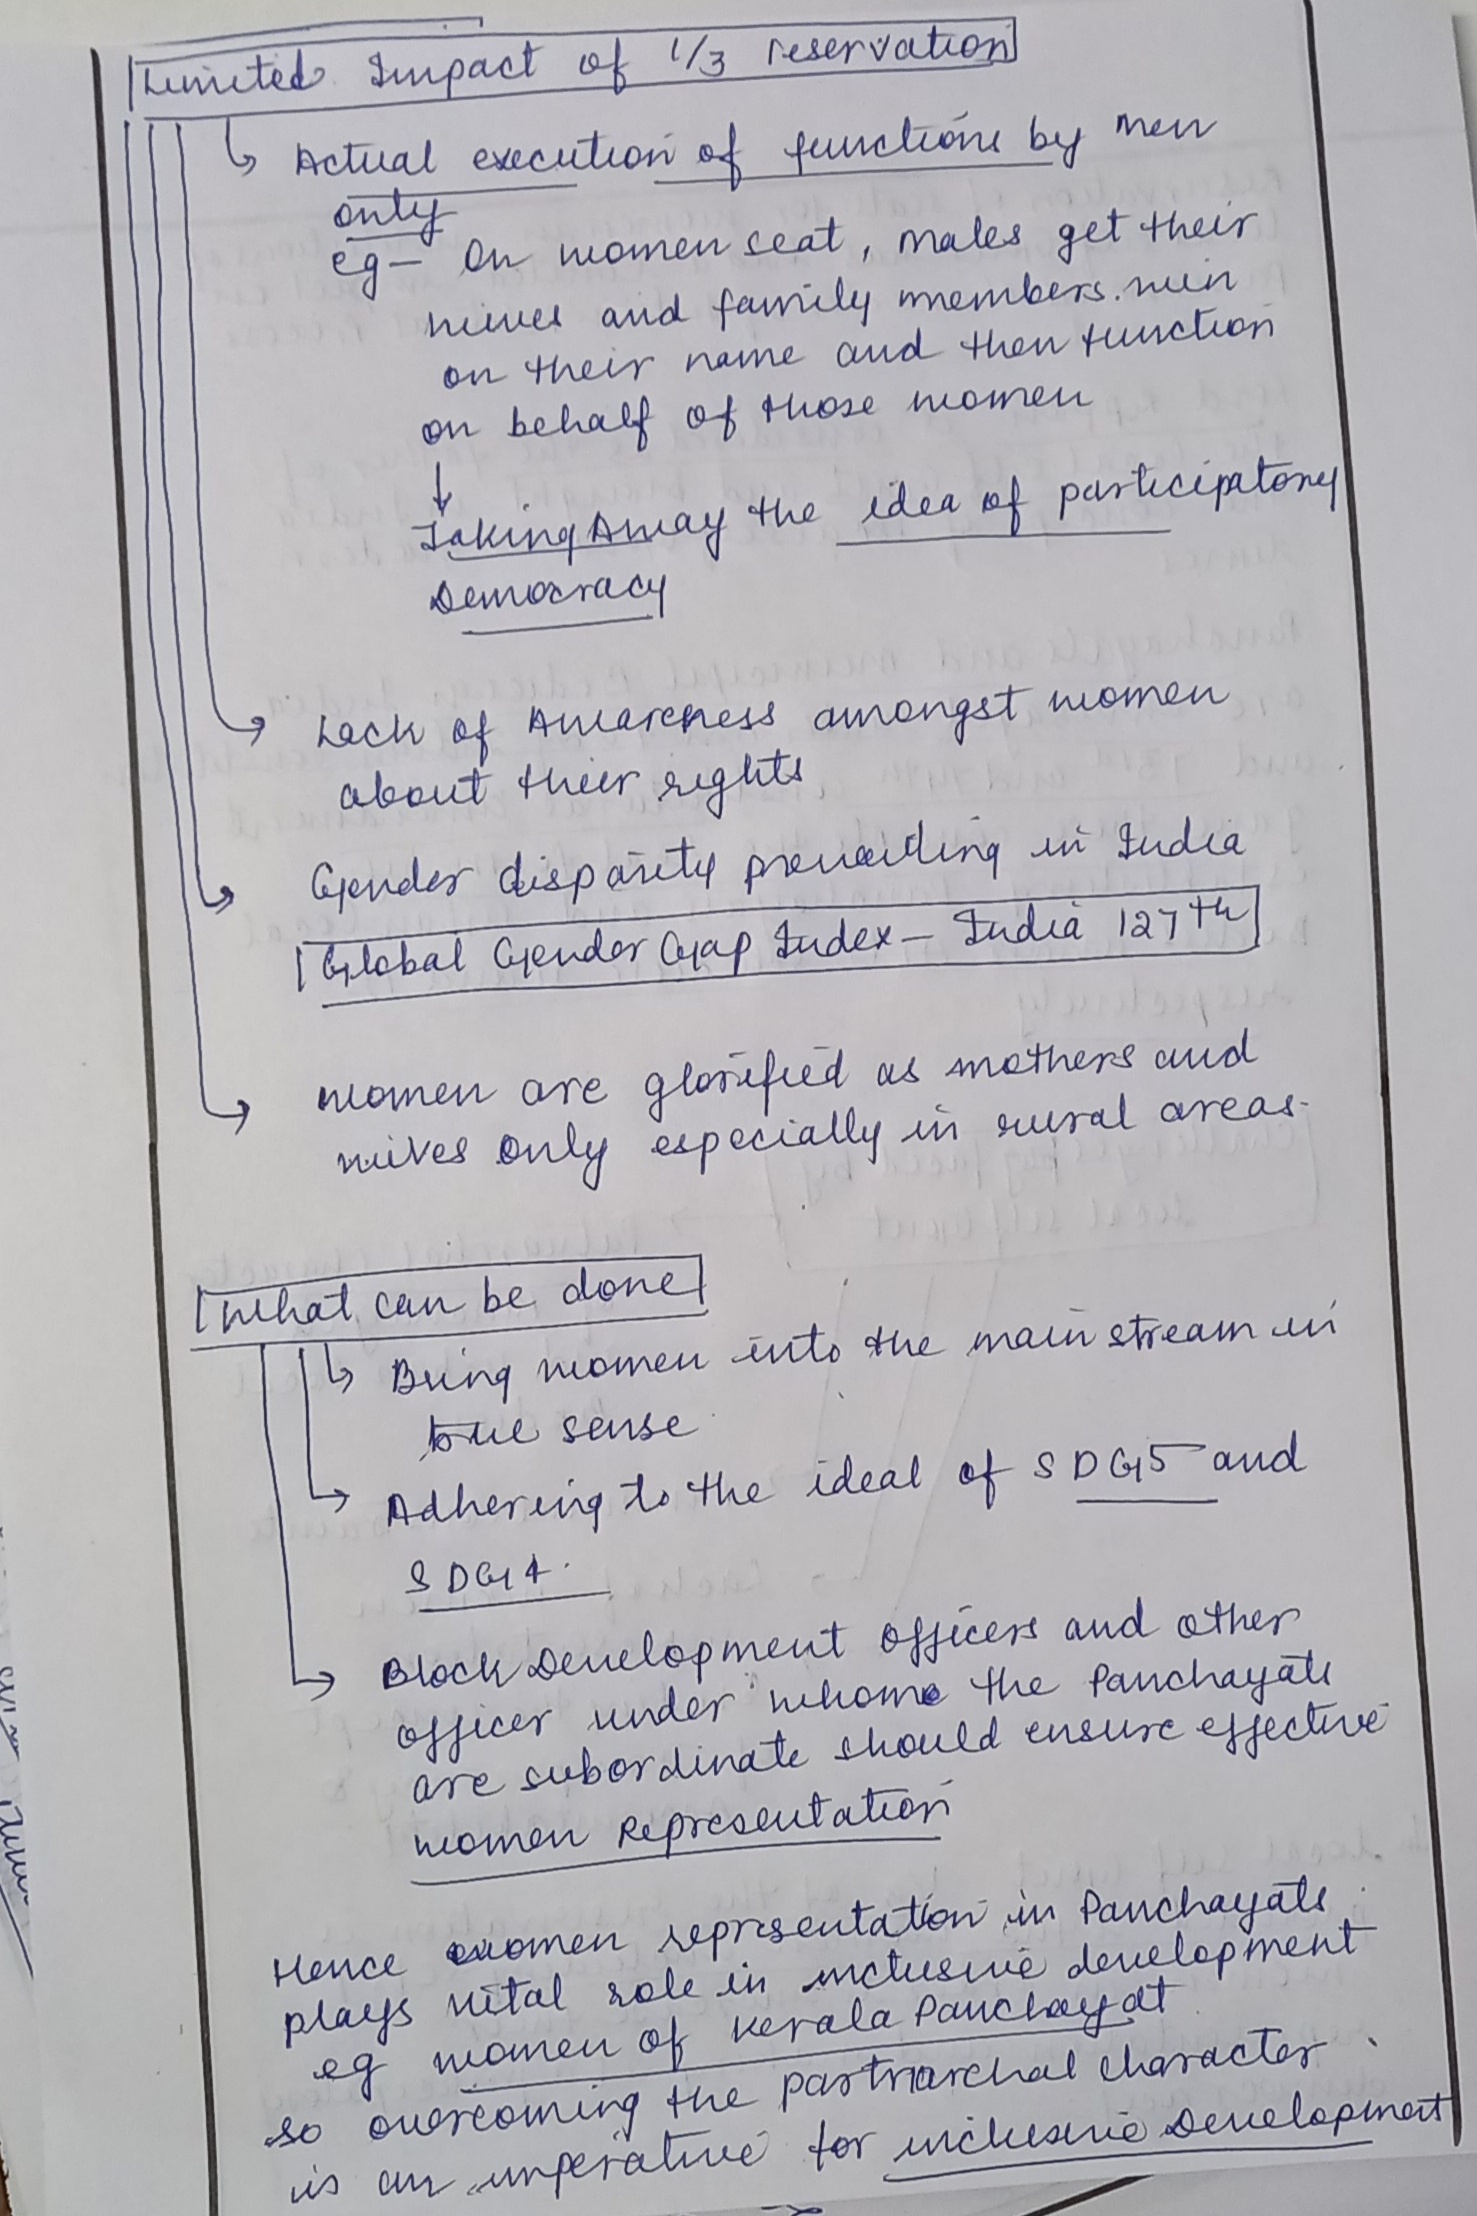 Limited Impact of 1/3 reservation
Actual execution of functions by men
only
eg - On women seat, males get their
wives and family members win
on their name and then function
on behalf of those women
Taking Away the idea of participatory
Democracy
Lack of Awareness amongst women
about their rights
Gender disparity prevailing in India
Global Gender Gap Index - India 127th
women are glorified as mothers and
wives only especially in rural areas.
What can be done
Bring women into the main stream in
true sense
Adhering to the ideal of SDG5 and
SDG4.
Block Development officers and other
officer under whome the Panchayats
are subordinate should ensure effective
women Representation
Hence women representation in Panchayats
plays vital role in inclusive development
eg women of Kerala Panchayat
so overcoming the partriarchal character
is an imperative for inclusive Development